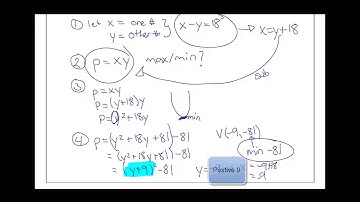 ① let x = one #
y = other #
x-y=18
x=y+18
② p=xy max/min?
sub
③
p=xy
p=(y+18)y
p=y²+18y
min
④ p=(y²+18y+81)-81
=(y²+18y+81)-81
=(y+9)²-81
V(-9,-81)
min -81
=-9+18
=9